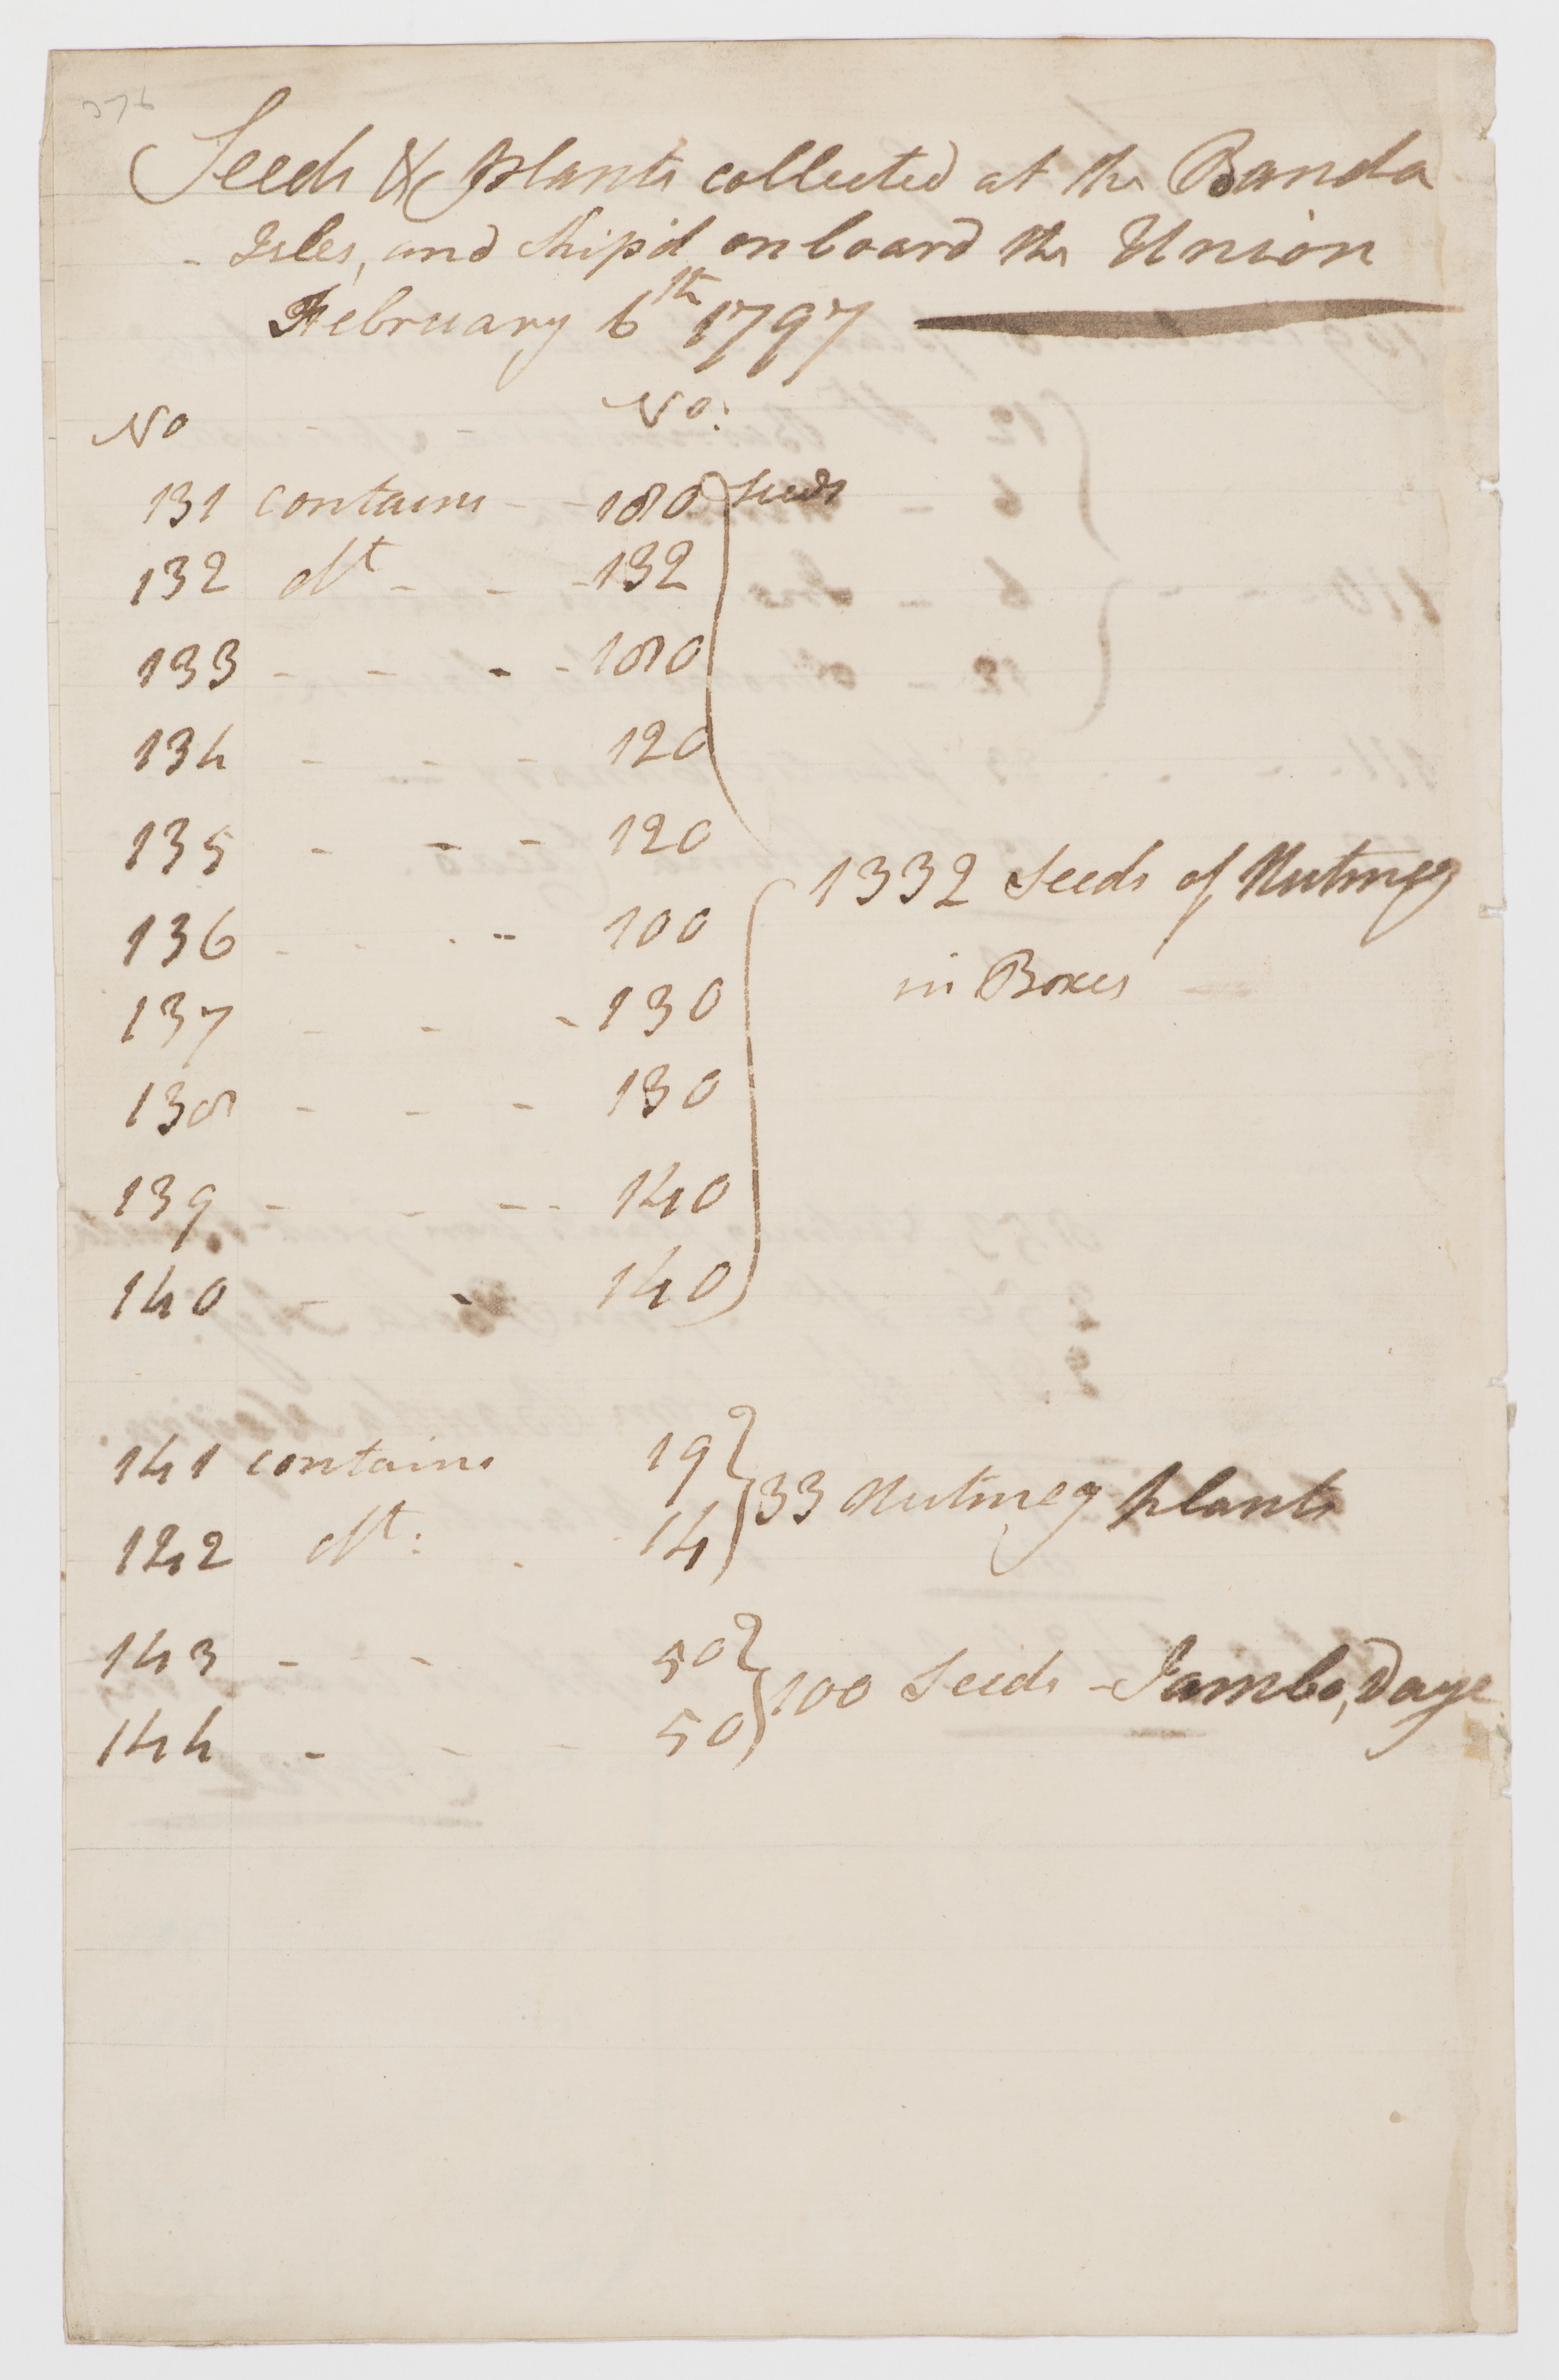 376
Seeds & Plants collected at the Banda
- Isles, and Ship'd on board the Union
February 6th 1797
No No:
131 contains - - 180 Seeds
132 dt - - - 132
133 - - - - 180
134 - - - 120
135 - - - 120
1332 Seeds of Nutmeg
136 - - - - 100
in Boxes
137 - - - 130
138 - - - 130
139 - - - - 140
140 - - 140
141 contains 19
33 Nutmeg Plants
142 dt: - 14
143 - - - 50
100 Seeds - Jambo,
144 - - - 50